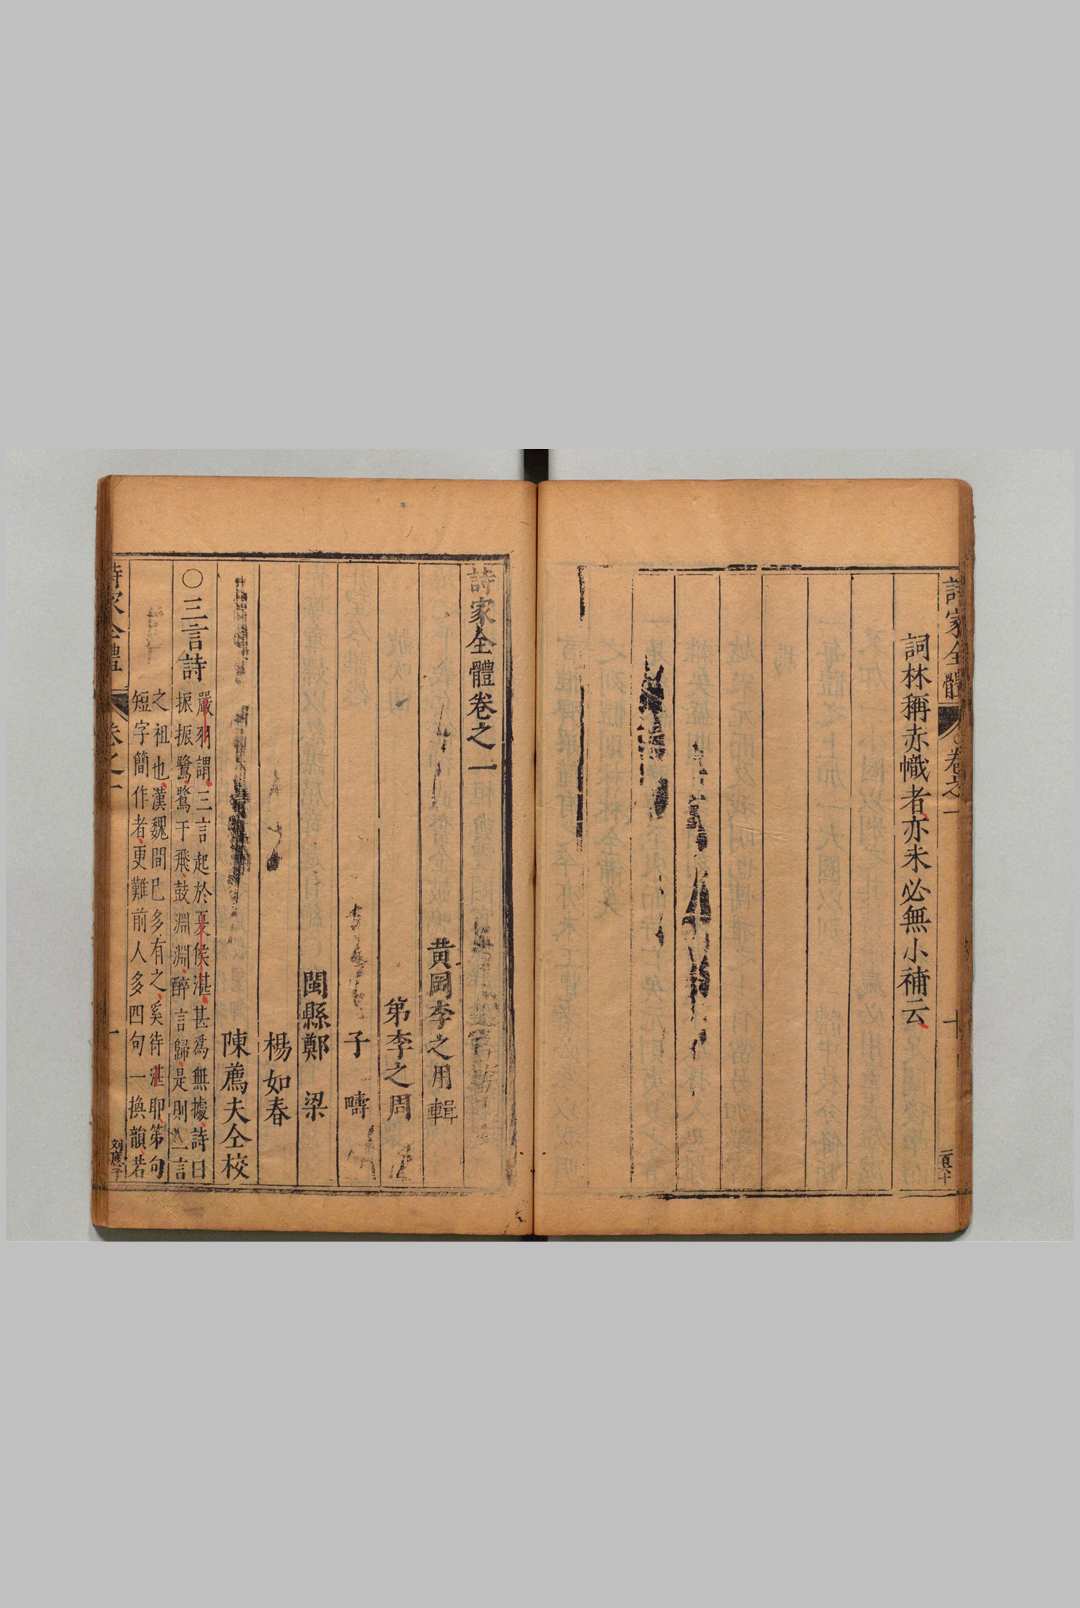 詩家全體
卷之一
十
詞林稱赤幟者亦未必無小補云
詩家全體卷之一
黃岡李之用輯
第李之周
子疇
閩縣鄭梁
楊如春
陳薦夫仝校
〇三言詩
嚴羽謂三言起於夏侯湛甚為無據詩曰
振振鷺鷺于飛鼓淵淵醉言歸是則三言
之祖也漢魏間已多有之奚待湛耶第句
短字簡作者更難前人多四句一換韻若
詩家全體
卷之一
一